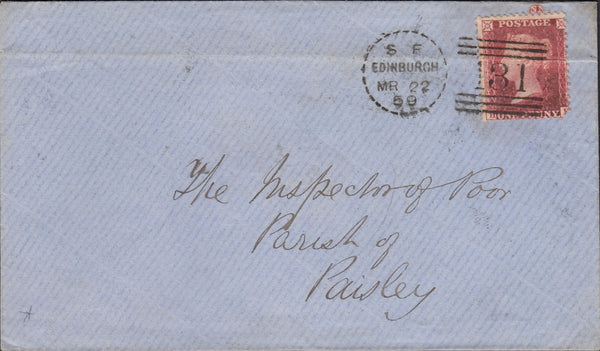 S F
EDINBURGH
MR 22
59
POSTAGE
131
The Inspector of Poor
Parish of
Paisley